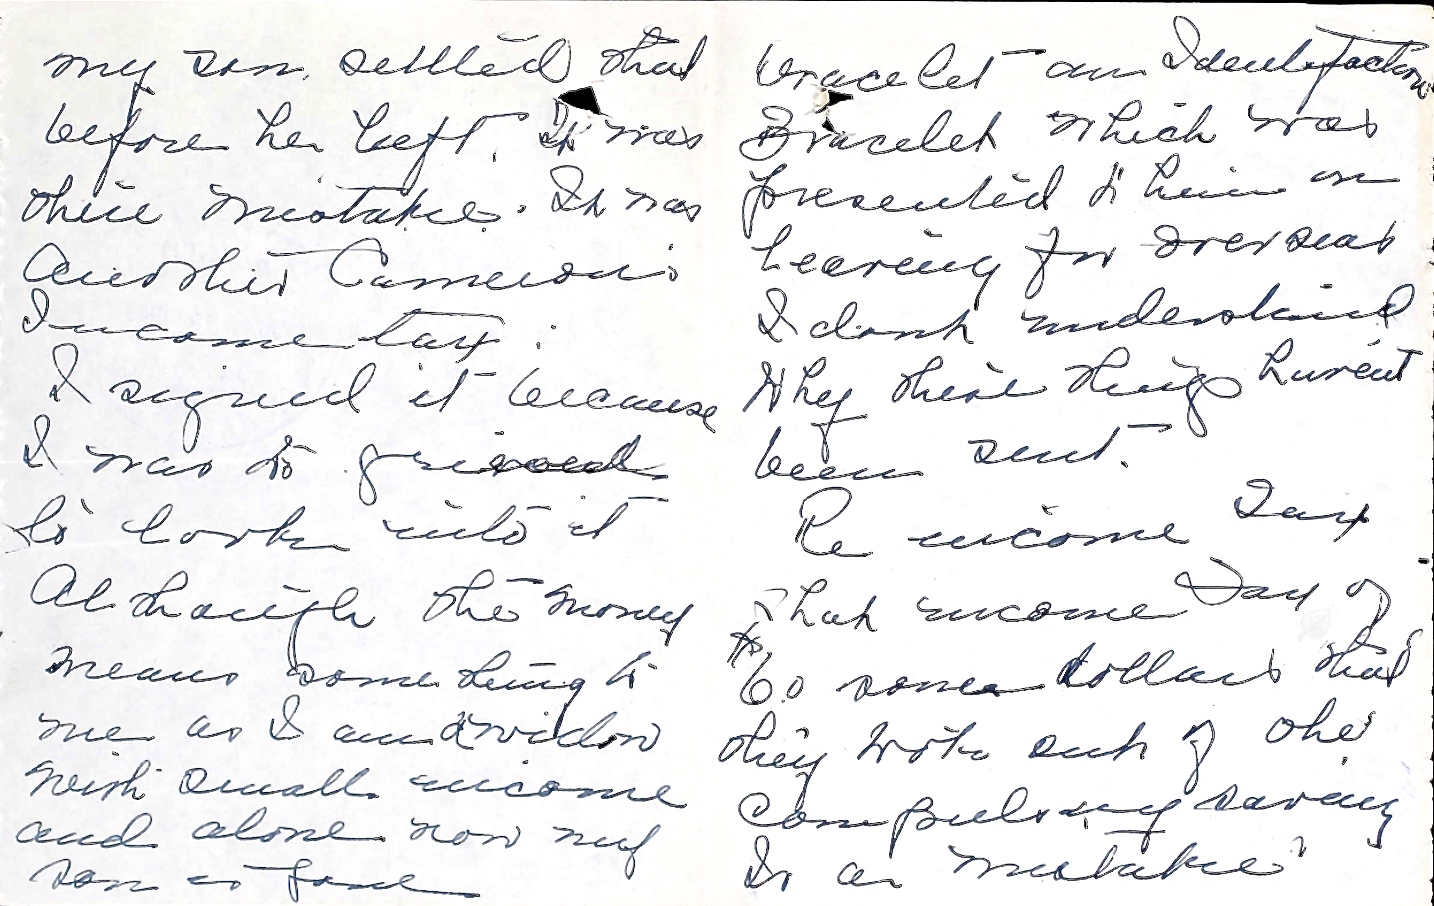 my son, settled that
before he left. It was
their mistake. It was
another Cameron's
Income tax.
I signed it because
I was to grieved
to look into it
Although the money
means something to
me as I am a widow
with small income
and alone now my
son is gone
bracelet an Identifaction
Bracelet which was
presented to him on
leaving for overseas
I dont understand
Why these things havent
been sent.
Re income Tax
that income Tax of
$60 some dollars that
they took out of the
Compulsory saving
Is a mistake